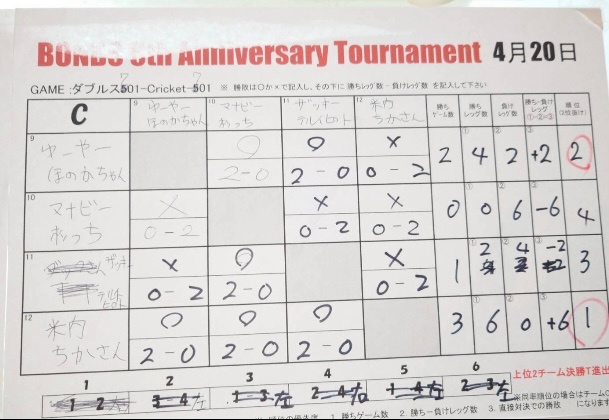 BONDS 8th Anniversary Tournament 4月20日
GAME:ダブルス501-Cricket-501 ※ 勝敗は○か×で記入し、その下に 勝ちレッグ数 - 負けレッグ数 を記入して下さい
C 9 ゆーやー ほのかちゃん 10 マナビー わっち 11 ザッキー 12 米内 ちかさん 勝ちゲーム数 勝ちレッグ数 負けレッグ数 勝ち-負けレッグ ①-②=③ 順位 (2位抜け)
9 ゆーやー ほのかちゃん ○ 2-0 ○ 2-0 × 0-2 2 4 2 +2 2
10 マナビー わっち × 0-2 × 0-2 × 0-2 0 0 6 -6 4
11 ザッキー × 0-2 ○ 2-0 × 0-2 1 2 4 -2 3
12 米内 ちかさん ○ 2-0 ○ 2-0 ○ 2-0 3 6 0 +6 1
1 2 3 4 5 6
上位2チーム決勝T進出
1. 勝ちゲーム数 2. 勝ち-負けレッグ数 3. 直接対決での勝敗